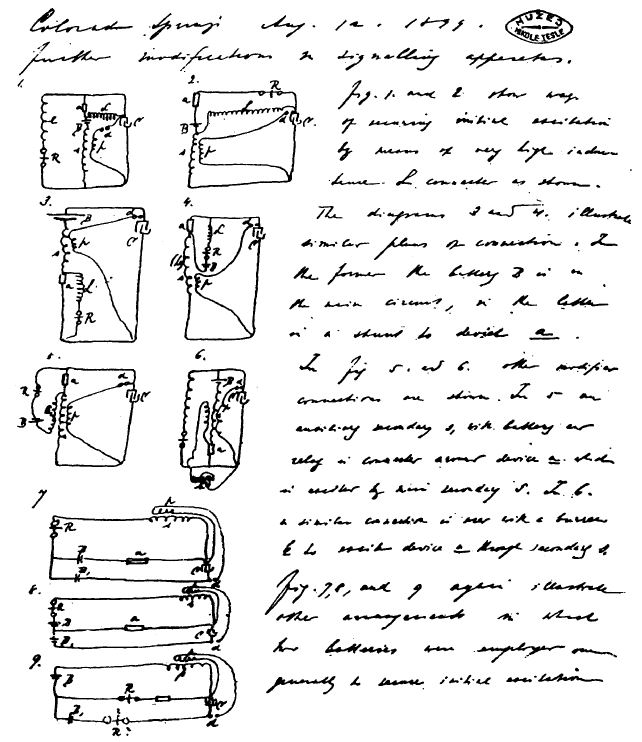 Colorado Springs Aug. 12. 1899.
MUZEJ NIKOLE TESLE
Further modifications in signalling apparatus.
Fig. 1. and 2. show ways
of securing initial excitation
by means of very high induc
tance L connected as shown.
The diagrams 3 and 4. illustrate
similar plans of connection. In
the former the battery B is in
the main circuit, in the latter
in a shunt to device a.
In fig 5. and 6. other modified
connections are shown. In 5 an
auxiliary secondary s, with battery and
relay is connected around device a which
is excited by main secondary S. In 6.
a similar connection is used with a
to excite device a through secondary s.
Fig. 7, 8, and 9 again illustrate
other arrangements in which
two batteries were employed
generally to secure initial excitation
1.
a
L
l
B
d
C
R
s
p
2.
R
a
L
d
B
C
s
p
3.
B
d
p
C
s
a
L
R
4.
a
L
d
R
C
B
s
p
5.
a
d
R
C
B
s
p
6.
B
d
C
a
7.
p
R
s
B
a
B,
C
d
8.
R
B
a
C
B,
d
9.
B
p
R
B,
R
d